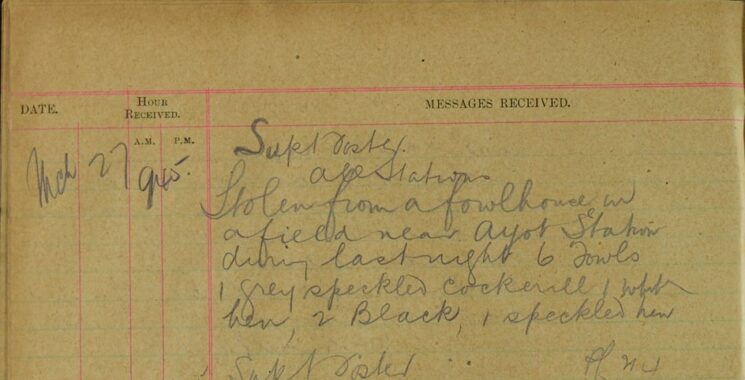 DATE. HOUR RECEIVED. MESSAGES RECEIVED.
A.M. P.M.
Mch 27 9.45. Supt Foster
all Stations
Stolen from a fowlhouse in
a field near Ayot Station
during last night 6 Fowls
1 grey speckled cockerill 1 white
hen, 2 Black, 1 speckled hen
Supt Foster